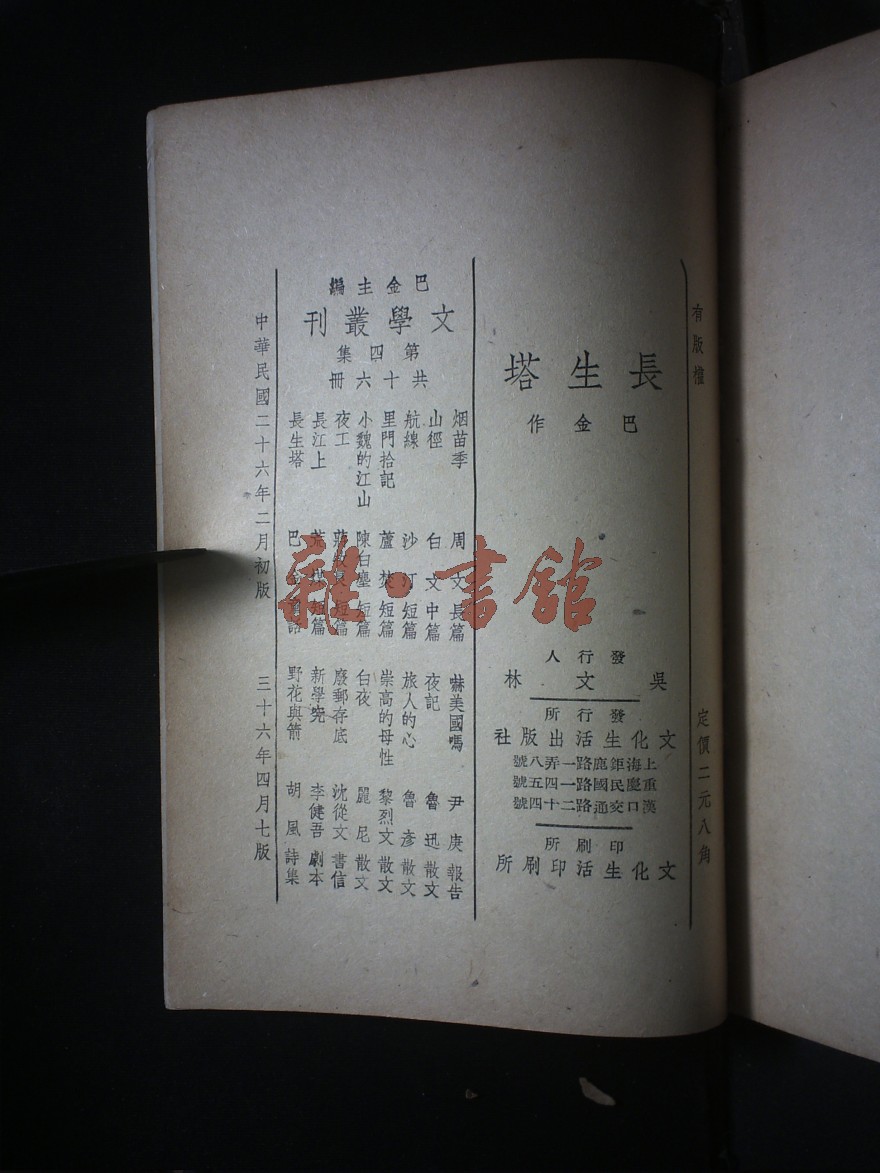 有版權
定價二元八角
長生塔
巴金作
發行人
吳文林
發行所
文化生活出版社
上海鉅鹿路一弄八號
重慶民國路一四五號
漢口交通路二十四號
印刷所
文化生活印刷所
巴金主編
文學叢刊
第四集
共十六冊
烟苗季 周文 長篇
山徑 白文 中篇
航線 沙汀 短篇
里門拾記 蘆焚 短篇
小魏的江山 陳白塵 短篇
夜工 蔣牧良 短篇
長江上 荒煤 短篇
長生塔 巴金 童話
嚇美國嗎 尹庚 報告
夜記 魯迅 散文
旅人的心 魯彥 散文
崇高的母性 黎烈文 散文
白夜 麗尼 散文
廢郵存底 沈從文 書信
新學究 李健吾 劇本
野花與箭 胡風 詩集
中華民國二十六年二月初版
三十六年四月七版
雜·書館